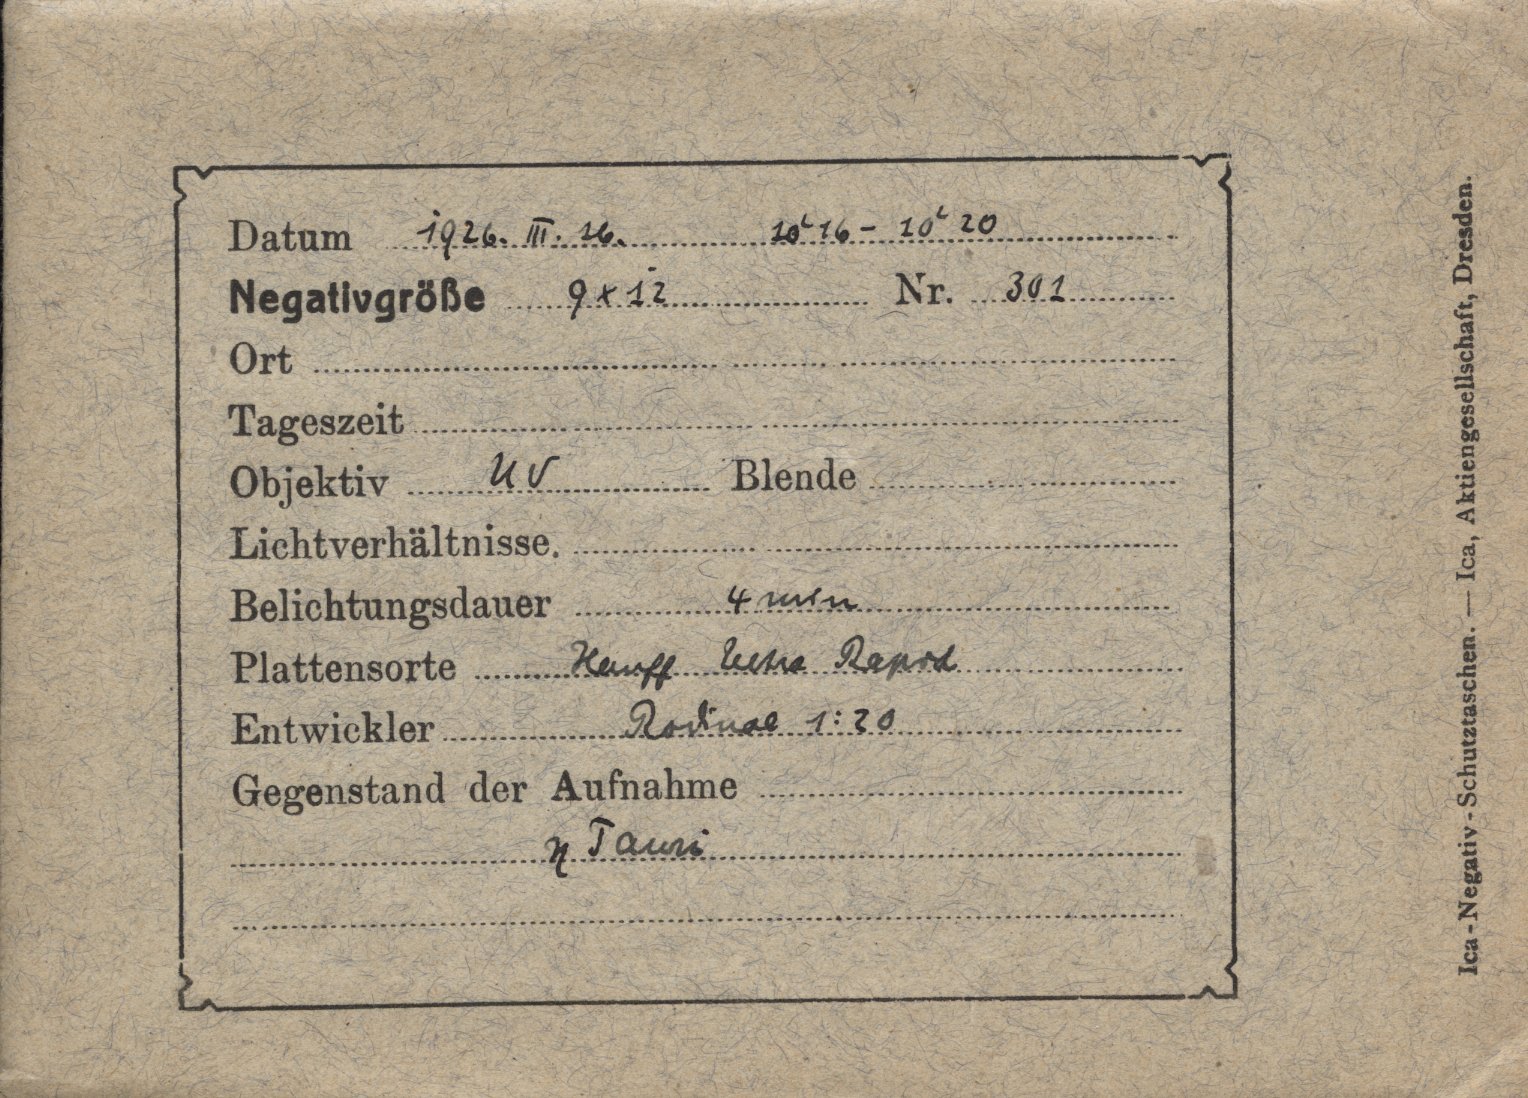 Datum 1926. III. 16. 10 16 - 10 20
Negativgröße 9 x 12 Nr. 301
Ort
Tageszeit
Objektiv UV Blende
Lichtverhältnisse.
Belichtungsdauer 4 min
Plattensorte Hauff Ultra Rapid
Entwickler Rodinal 1:20
Gegenstand der Aufnahme
η Tauri
Ica-Negativ-Schutztaschen. — Ica, Aktiengesellschaft, Dresden.